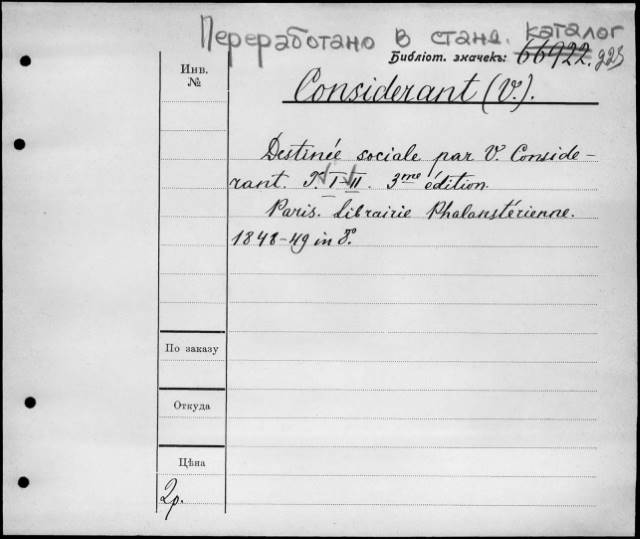 Переработано в станд. каталог
Библіот. значекъ: 66922. 923
Инв. №
Considerant (V.).
Destinée sociale par V. Conside-
rant. T. I-II. 3me édition.
Paris. Librairie Phalanstérienne.
1848-49 in 8°.
По заказу
Откуда
Цѣна
2р.